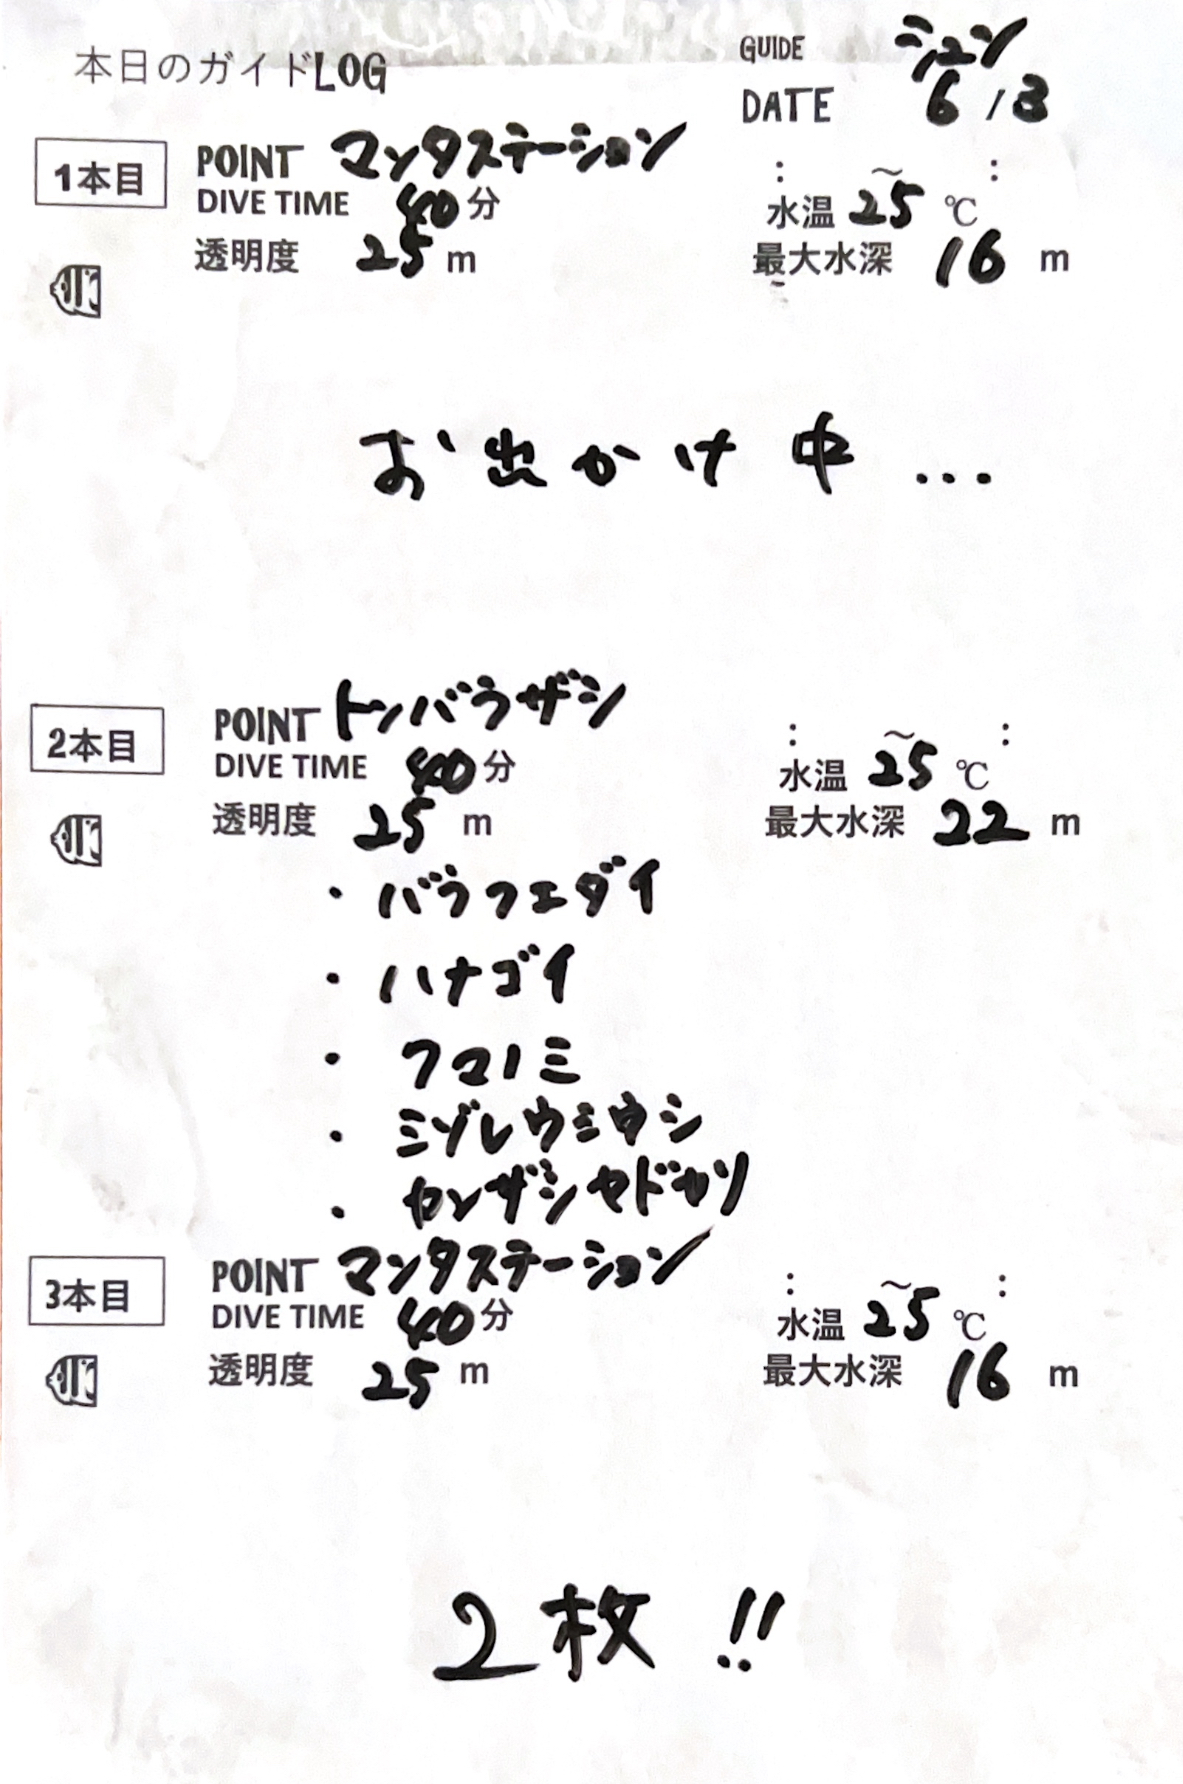 本日のガイドLOG
GUIDE シュン
DATE 6/3
1本目
POINT マンタステーション : ～ :
DIVE TIME 40分 水温 25 ℃
透明度 25 m 最大水深 16 m
お出かけ中...
2本目
POINT トンバラザシ : ～ :
DIVE TIME 40分 水温 25 ℃
透明度 25 m 最大水深 22 m
・バラフエダイ
・ハナゴイ
・クマノミ
・ミゾレウミウシ
・カンザシヤドカリ
3本目
POINT マンタステーション : ～ :
DIVE TIME 40分 水温 25 ℃
透明度 25 m 最大水深 16 m
2枚!!